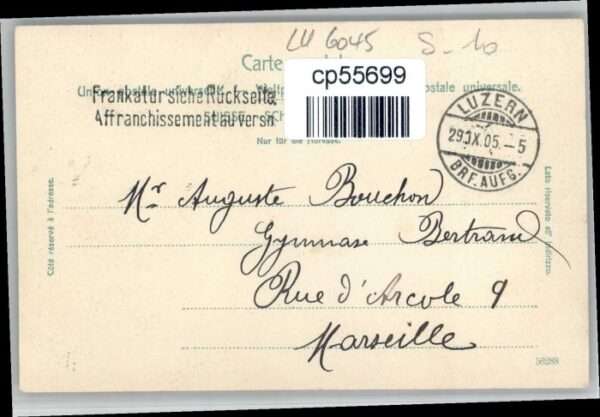 LU 6045 S-10
Carte
cp55699
Union postale universelle. — Weltp postale universale.
Frankatur siehe Rückseite
Affranchissement au verso
SUISSE. SCH
Nur für die Adresse.
LUZERN
29.IX.05.-5
BRF.AUFG.
Côté réservé à l'adresse.
Lato riservato all' indirizzo.
Mr Auguste Bouchon
Gymnase Bertrand
Rue d'Arcole 9
Marseille
56288